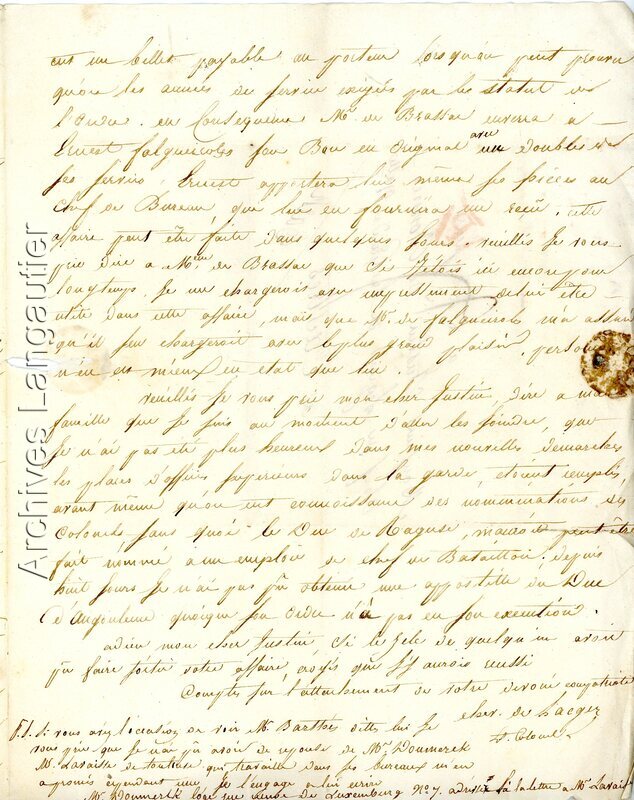 est un billet payable au porteur lorsqu'on peut prouver
qu'on a les années de service exigées par les statuts de
l'ordre. en Conséquence Mr de Brassac enverra a
Ernest falguerolles son Bon en original avec un double de
ses services. Ernest apportera lui même ses pièces au
chef de Bureau, qui lui en fournira un recu. cette
affaire peut être faite dans quelques jours. veuillés je vous
prie dire a Mme de Brassac que si j'étois ici encore pour
longtems, je me chargerois avec empressement de lui être
utile dans cette affaire, mais que Mr. de falguerolles m'a assuré
qu'il s'en chargeroit avec le plus grand plaisir. personne
n'en est mieux en etat que lui.
veuillés je vous prie mon cher Justin, dire a ma
famille que je suis au moment d'aller les joindre, que
je n'ai pas été plus heureux dans mes nouvelles demarches
les places d'officiers superieurs dans la garde, etoient remplies,
avant même qu'on eut connoissance des nominations des
Colonels sans quoi le Duc de Raguse, m'auroit peut-être
fait nommé a un emploi de chef de Bataillon. depuis
huit jours je n'ai pas pu obtenir une appostille du Duc
d'Angouleme quoique son ordre n'a pas eu son execution.
adieu mon cher Justin, si le zele de quelqu'un avoit
pu faire sortir votre affaire, croyés que j'y aurois reussi
Comptés sur l'attachement de votre devoué compatriote
cher. de Lacger
Lt Colonel
P.S. Si vous avez l'occasion de voir Mr Barthes dittes lui je
vous prie que je n'ai pu avoir de reponse de Mr. Doumerck
Mr Lavaisse de toulouse qui travaille dans ses bureaux m'en
a promis cependant une. Je l'engage a lui ecrire
Mr Doumerck loge rue de Luxembourg No 7. adresse la lettre a Mr Lavaisse
Archives Langautier